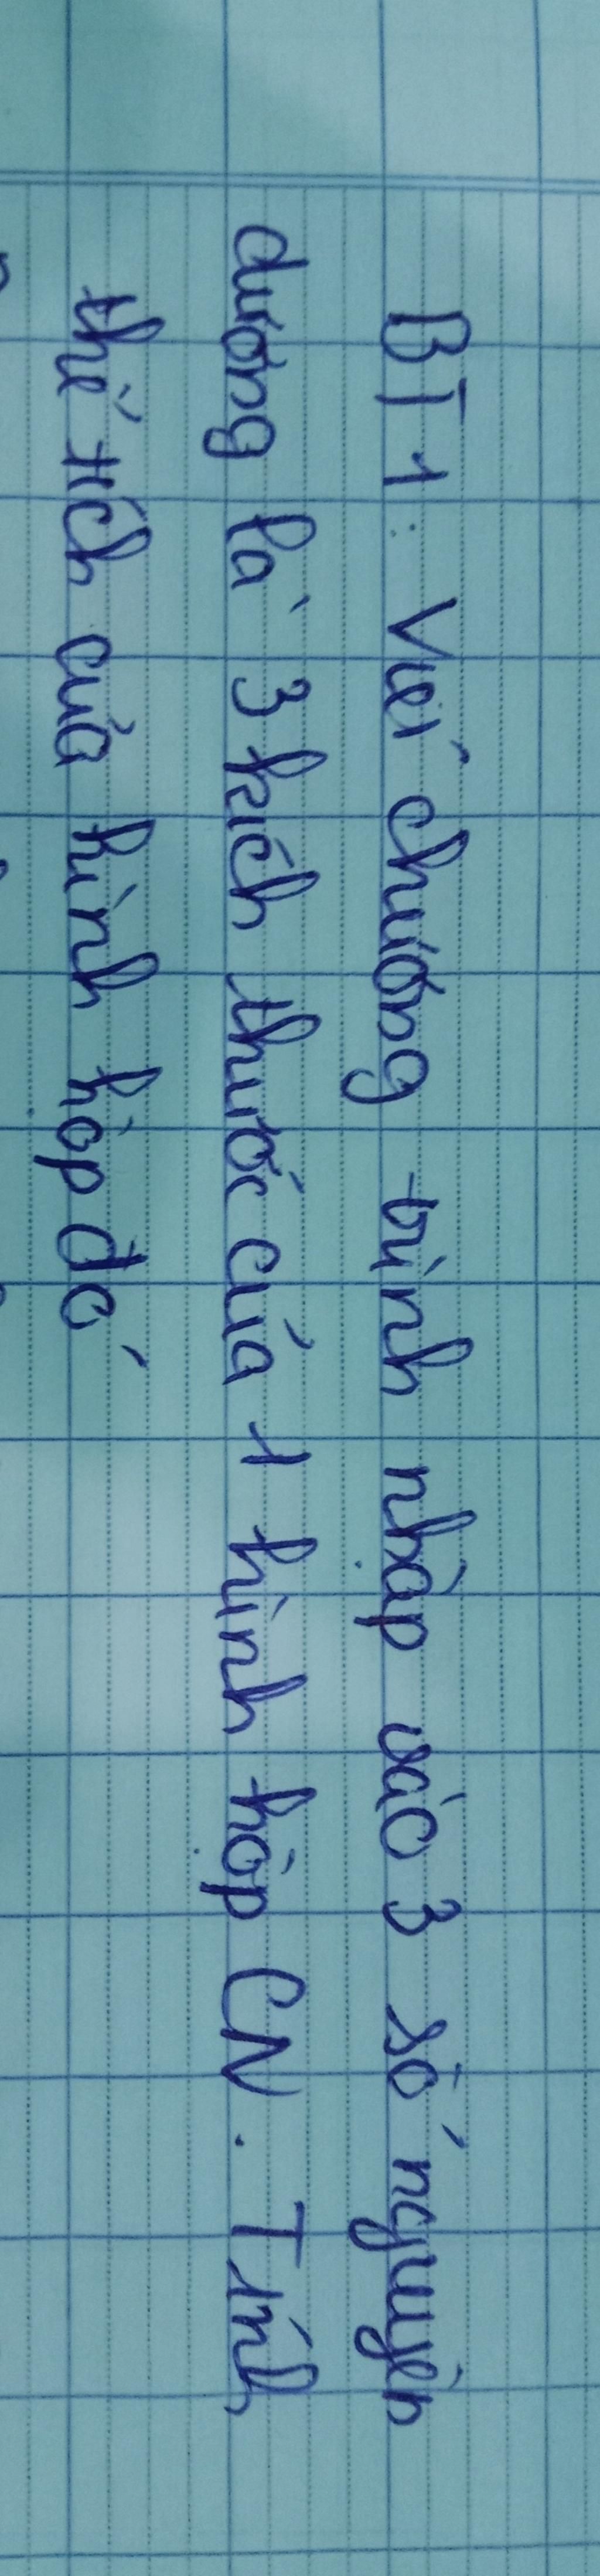 BT1: Viết chương trình nhập vào 3 số nguyên
dương là 3 kích thước của 1 hình hộp CN. Tính
thể tích của hình hộp đó